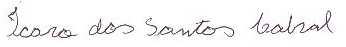 Ícaro dos Santos Cabral